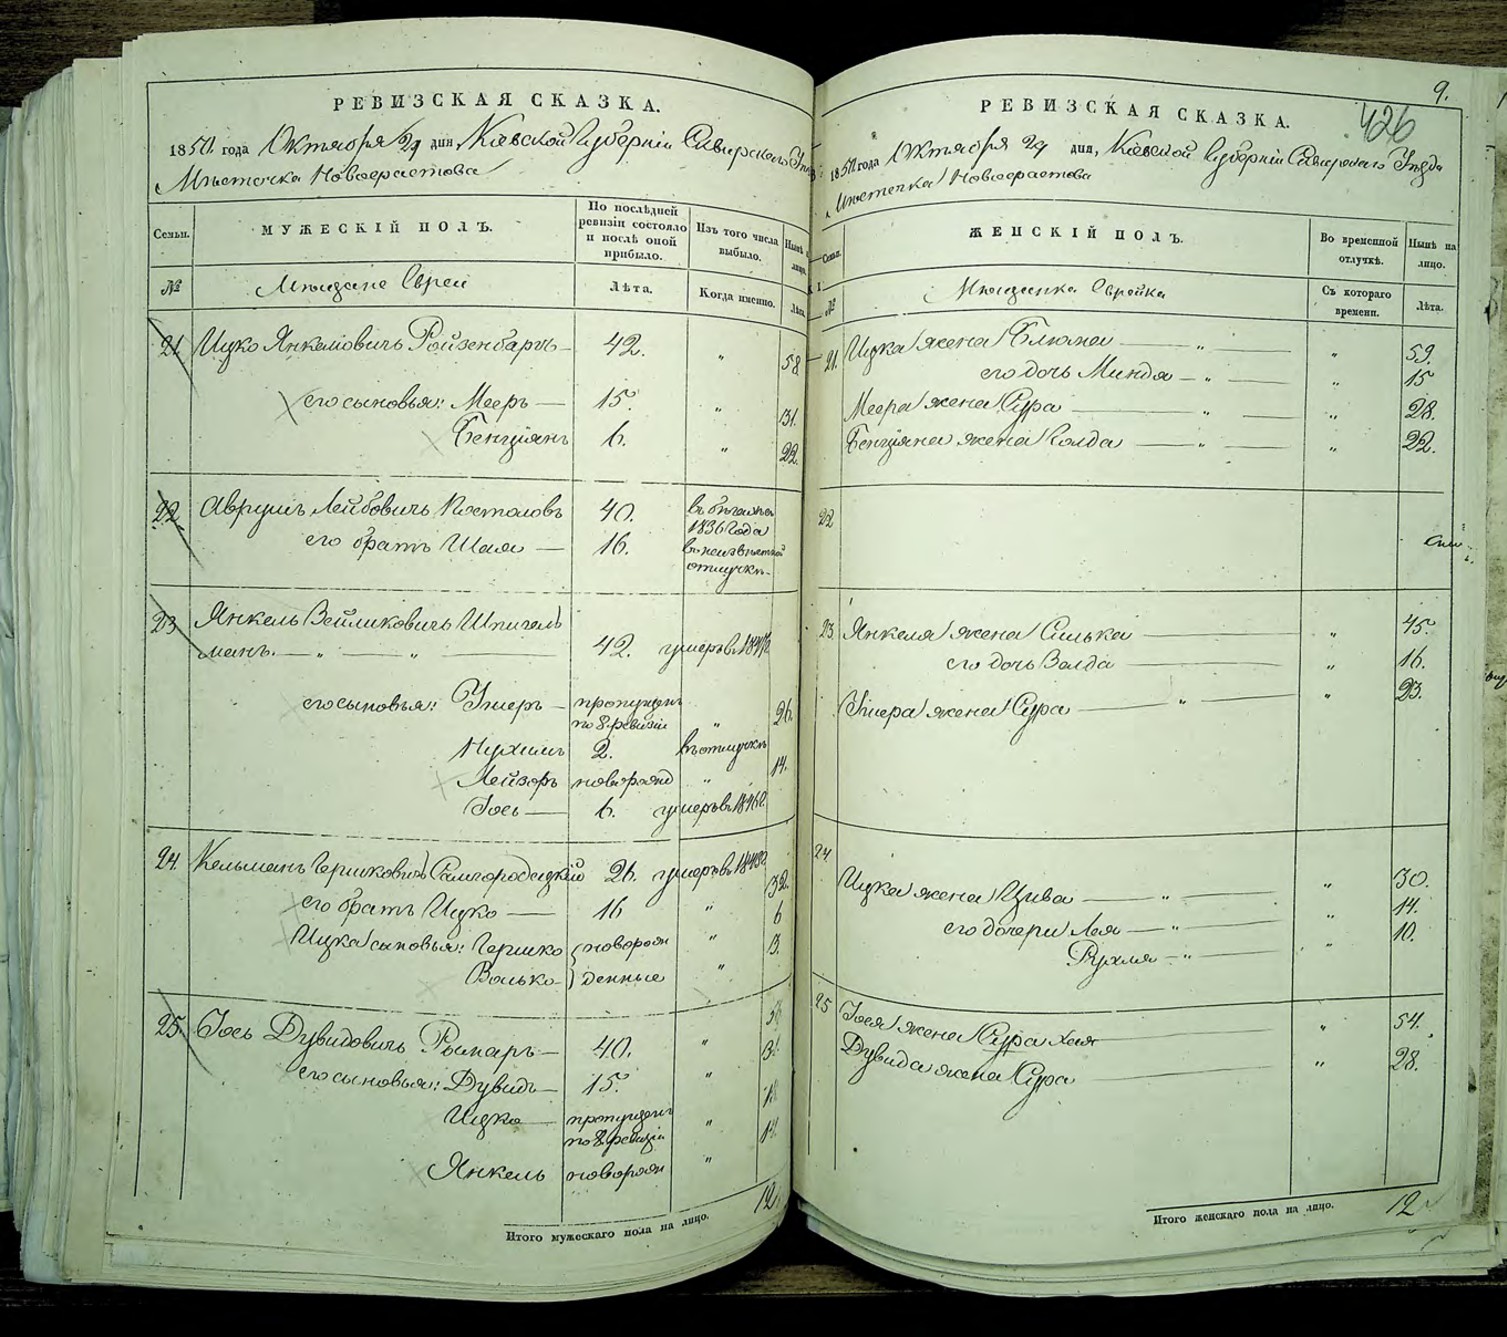 РЕВИЗСКАЯ СКАЗКА.
1850. года Октября 29 дня, Кіевской Губерніи Сквирскаго
Мѣстечка Новофастова
Семьи.
МУЖЕСКІЙ ПОЛЪ.
По послѣдней ревизіи состояло и послѣ оной прибыло.
Изъ того числа выбыло.
Нынѣ
лицо.
№
Мѣщане Евреи
Лѣта.
Когда именно.
Лѣта.
21 Ицко Янкеловичъ Ройзенбаргъ — 42. „ 58
его сыновья: Мееръ — 15. „ 31.
Бенціянъ 6. „ 22.
22. Аврумъ Лейбовичъ Костоловъ 40. въ бѣгахъ съ 1836 года
его братъ Шая — 16. въ неизвѣстной отлучкѣ.
23 Янкель Зейликовичъ Шпигель
манъ. — „ — „ — 42. умеръ в.
его сыновья: Ушеръ — пропущенъ по 8. ревизіи „ 26.
Нухимъ 2. въ отлучкѣ
Лейзоръ новорожд „ 14.
Іось — 6. умеръ в. 1846г.
24. Кельманъ Гершковичъ Самгородецкій 26. умеръ в. 1848г.
его братъ Ицко — 16 „ 32.
Ицка сыновья: Гершко новорож „ 6
Волько денные „ 3.
25. Іось Дувидовичъ Рыпаръ — 40. „
его сыновья: Дувидъ — 15. „
Ицко — пропущенъ по 8. ревизіи „
Янкель новорож „ 14.
Итого мужескаго пола на лицо. 12.
9.
426
РЕВИЗСКАЯ СКАЗКА.
1850 года Октября 29 дня, Кіевской Губерніи Сквирскаго Уѣзда
Мѣстечка Новофастова
Семьи.
ЖЕНСКІЙ ПОЛЪ.
Во временной отлучкѣ.
Нынѣ на лицо.
№
Мѣщанка Еврейка
Съ котораго времени.
Лѣта.
21. Ицка жена Блюма — „ — „ 59.
его дочь Миндя — „ — „ 15
Меера жена Сура — „ — „ 28.
Бенціяна жена Голда — „ — „ 22.
22
23. Янкеля жена Сипька — „ 45.
его дочь Золда — „ 16.
Ушера жена Сура — „ — „ 23.
24
Ицка жена Цива — „ — „ 30.
его дочери Лея — „ — „ 14.
Рухля — „ — „ 10.
25 Іося жена Сура Хая — „ 54.
Дувида жена Сура „ 28.
Итого женскаго пола на лицо. 12